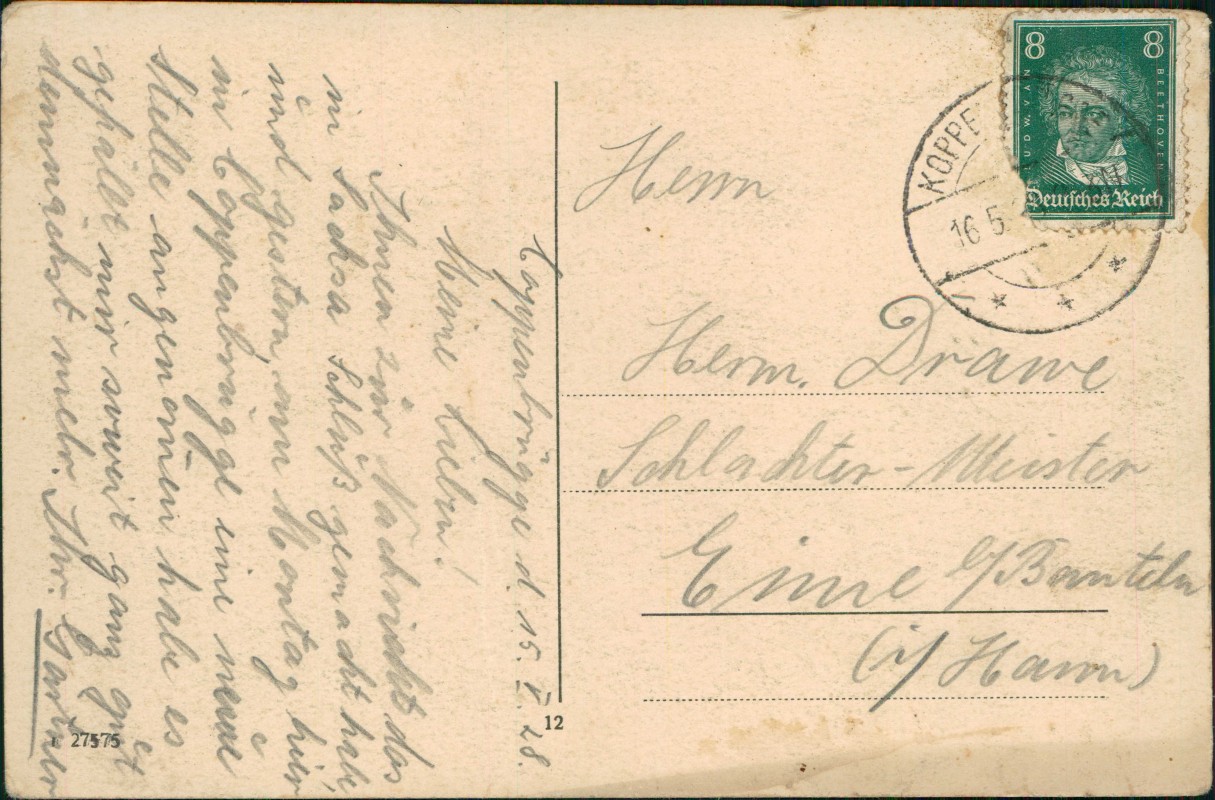 Coppenbrügge d. 15. V. 28.
Meine Lieben!
Ihnen zur Nachricht das
in Sachsa Schluß gemacht habe
und gestern am Montag hier
in Coppenbrügge eine neue
Stelle angenomen habe es
gefällt mir soweit ganz gut
demnächst mehr. Ihr. Gärtner
27575
12
Herrn
Herm. Drawe
Schlachter-Meister
Eime b/Banteln
(i/Hann)
8 8
LUDW. VAN BEETHOVEN
Deutsches Reich
KOPPE
16.5.